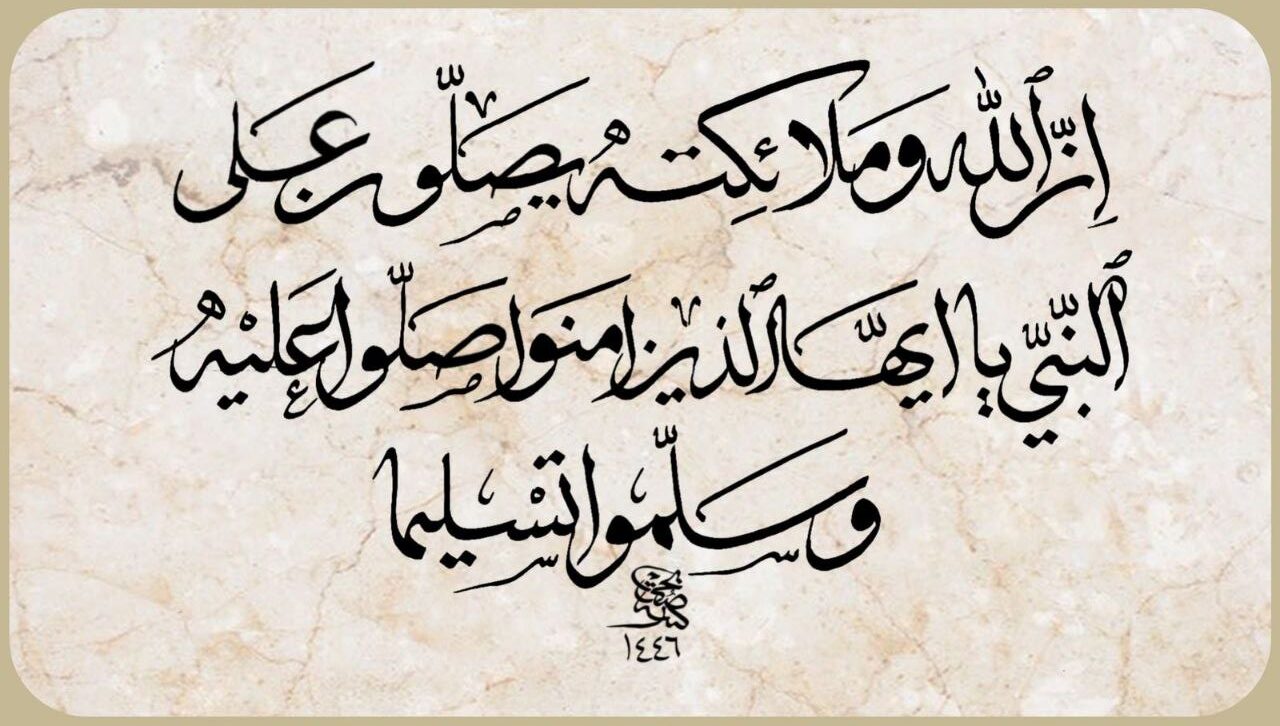 ان الله وملائكته يصلون على
النبي يا ايها الذين امنوا صلوا عليه
وسلموا تسليما
١٤٤٦